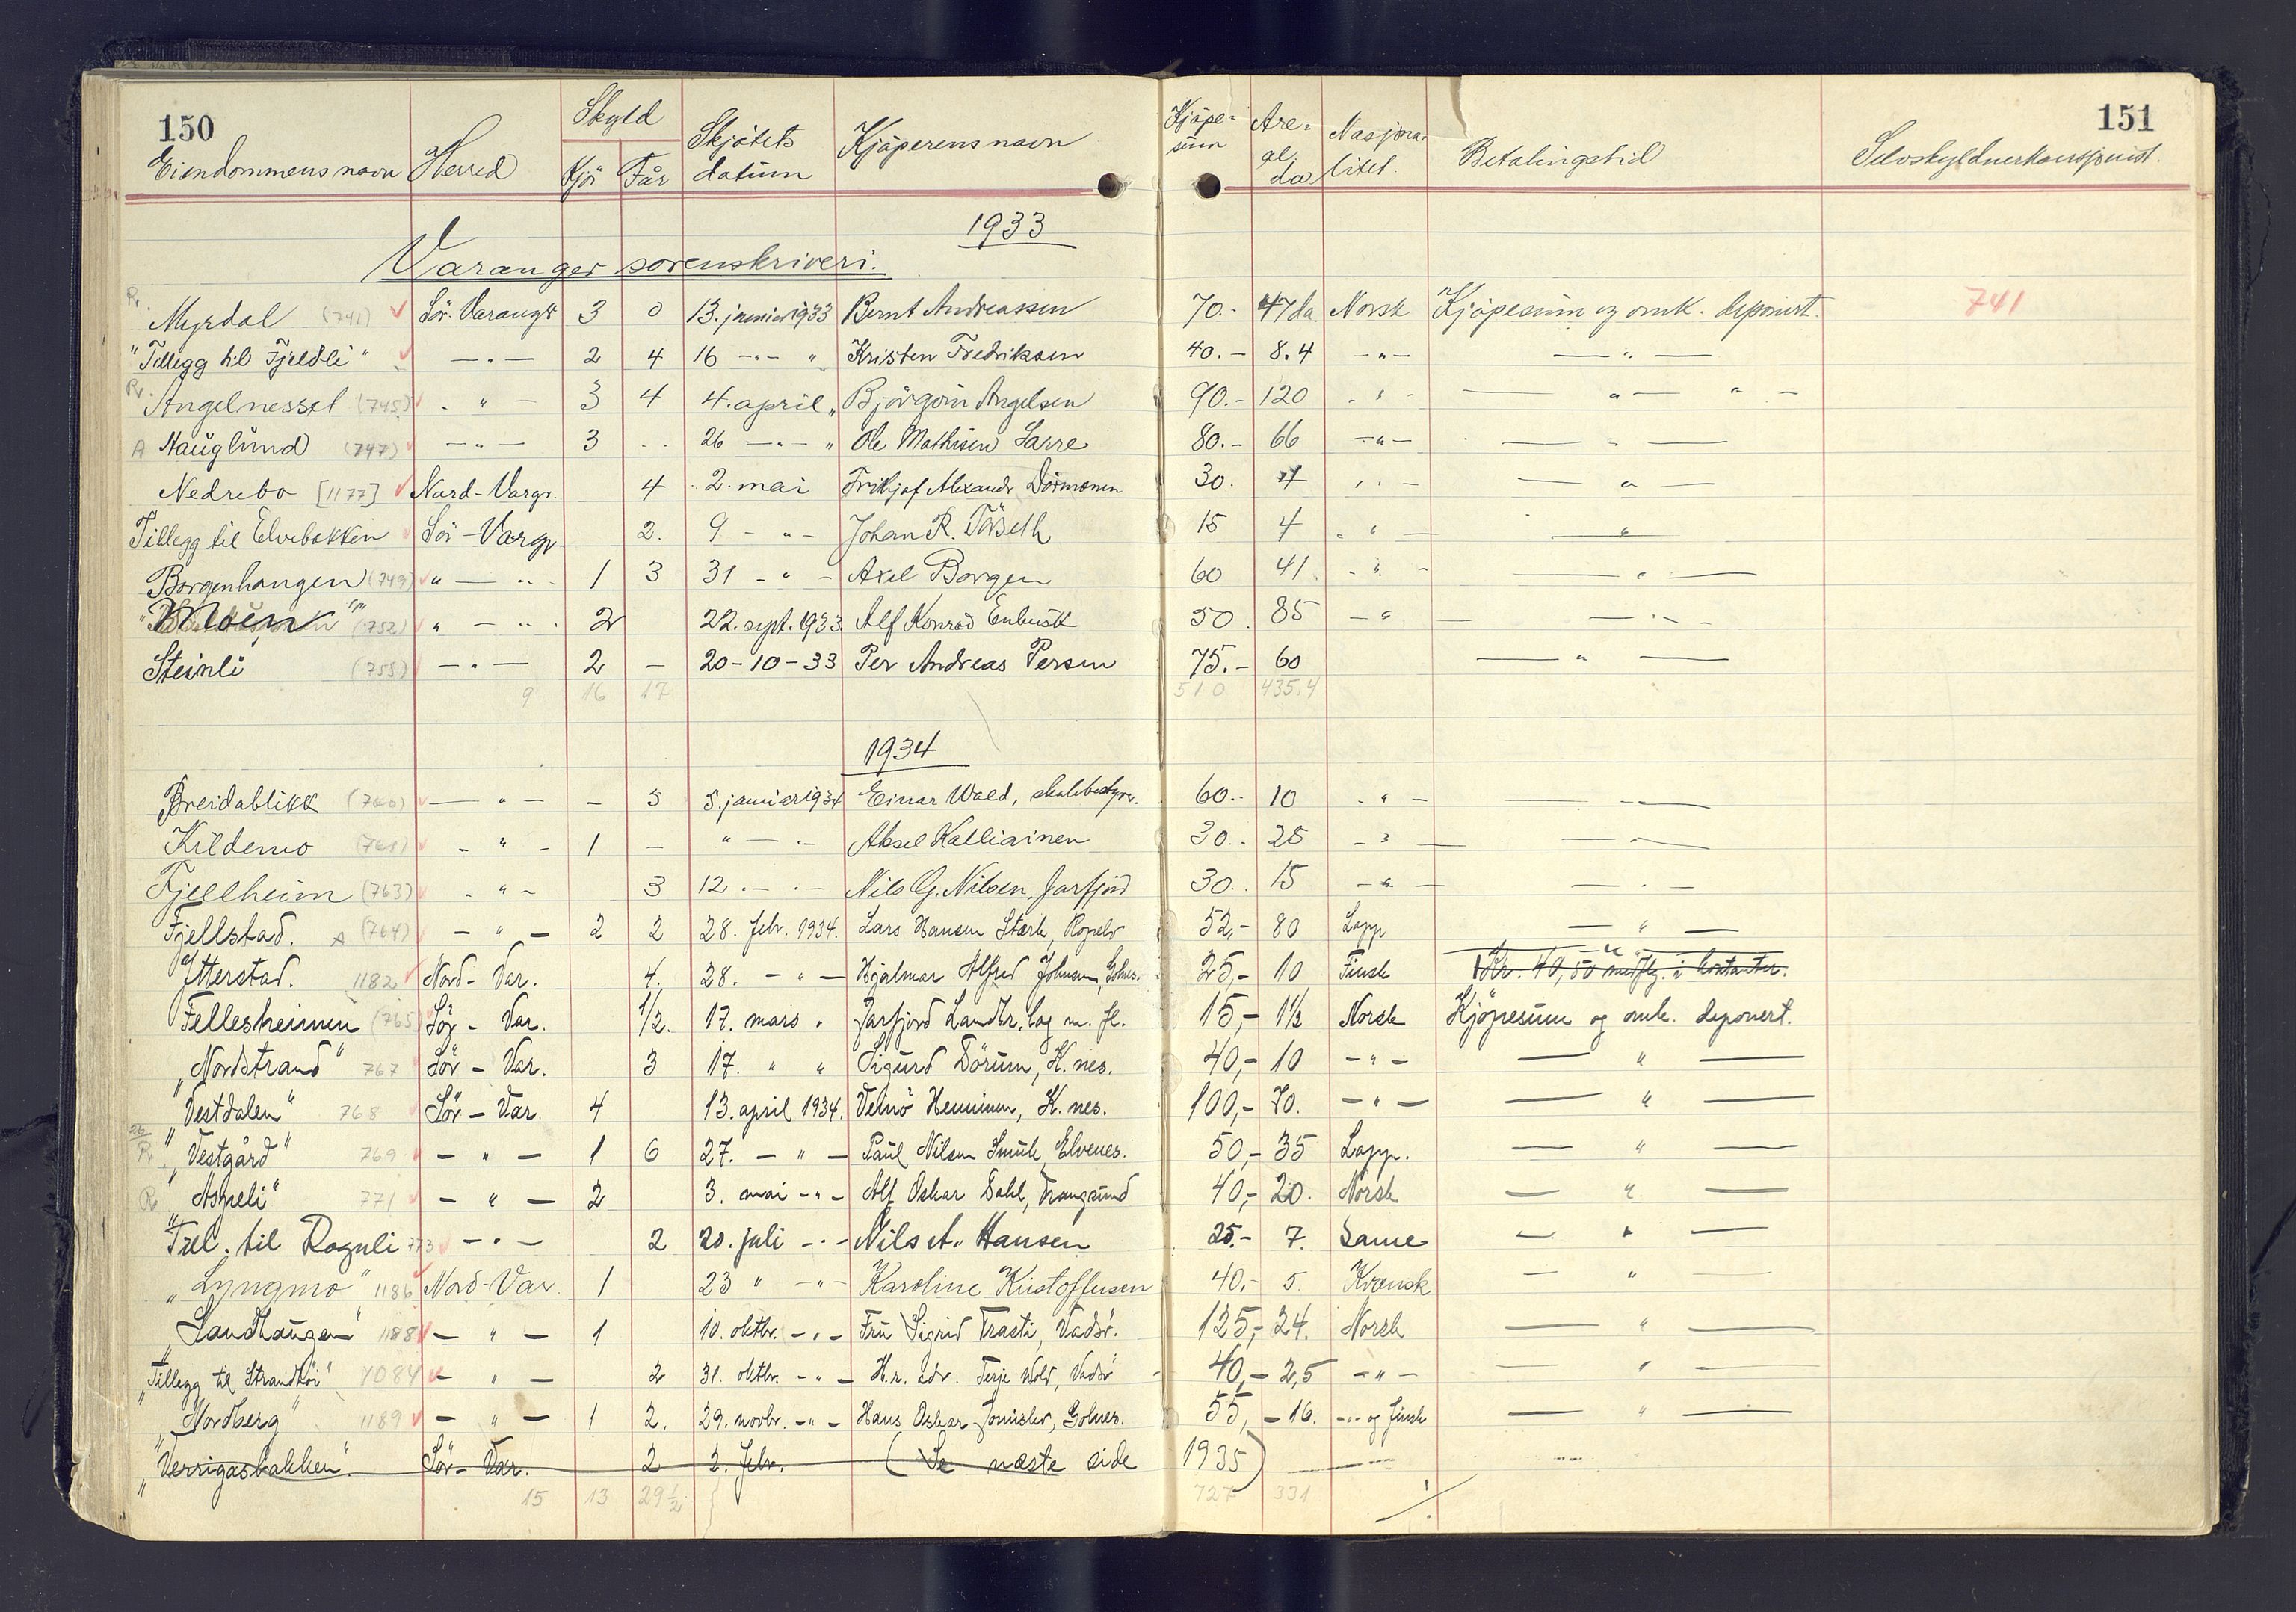 150
151
Skyld
Eiendommens navn Herred Kjör Får Skjötets datum Kjöperens navn Kjöpesum Areal da Nasjonalitet. Betalingstid
1933
Varanger sorenskriveri.
Myrdal (741) Sör-Varangr 3 0 13. januar 1933 Bernt Andreassen 70.- 47 da Norsk Kjöpesum og omk. deponert. 741
"Tillegg til Fjeldli" -"- 2 4 16 -"- " Kristen Fredriksen 40.- 8.4 -"- -"-
Angelnesset (745) " 3 4 4. april " Björgoin Angelsen 90.- 120 -"- -"- "
A Hauglund (747) -"- 3 26 -"- " Ole Mathisen Sarre 80.- 66 -"- -"-
Nedrebo [1177] Nord-Vargr. 4 2. mai Frithjof Alexandr 30. 4 -"- -"-
Tillegg til Elvebakken Sör-Vargr 2. 9 -"- Johan R. 15 4 -"- -"-
Borgenhaugen (749) " -"- 1 3 31 -"- Axel Borgen 60 41. -"- -"-
"Moen" (752) " -"- 2 22. sept. 1933. Alf Konrad Enbusk 50. 85 -"- -"-
Steinli (755) -"- 2 - 20-10-33 Per Andreas Persen 75.- 60 -"-
9 16 17 510 435.4
1934
Breidablikk (760) -"- - 5 5. januar 1934 Einar Wald, skolebestyrer. 60.- 10 -"- -"-
Kildemo (761) -"- 1 - " -"- Aksel Kalliainen 30.- 25 -"- -"-
Fjellheim (763) -"- 3 12. -"- Nils G. Nilsen, Jarfjord 30.. 15 -"- -"-
Fjellstad. A (764) -"- 2 2 28. febr. 1934. Lars Hansen Stærk, Ropelv 52,- 80 Lapp -"-
Ytterstad. 1182 Nord-Var. 4. 28. -"- Hjalmar Alfred Johnsen, Golnes. 25,- 10 Finsk Kr. 40,50 medflg. i kontanter.
Fellesheimen (765) Sör-Var. 1/2. 17. mars " Jarfjord Landbr. lag m. fl. 15,- 1½ Norsk Kjöpesum og omk. deponert.
"Nordstrand" 767 Sör-Var. 3 17. " " Sigurd Dörum, K.nes. 40,- 10 -"- -"-
"Vestdalen" 768 Sör-Var. 4 13. april 1934. Veinö Henninen, K.nes. 100,- 70. -"- -"-
"Vestgård" 769 -"- 1 6 27. -"- Paul Nilsen Smuk, Elvenes. 50,- 35 Lapp. -"-
"Aspeli" 771 -"- 2 3. mai -"- Alf Oskar Dahl, Trangsund 40,- 20. Norsk -"-
Till. til Roguli 773 -"- 2 20. juli -"- Nils A. Hansen 25.- 7. Same -"-
"Lyngmo" 1186 Nord-Var. 1 23 " -"- Karoline Kristoffersen 40,- 5. Kvænsk -"-
"Sandhaugen" 1188 -"- 1 10. oktbr. -"- Fru Sigrid Trasti, Vadsö. 125,- 24. Norsk -"-
"Tillegg til Strandhöi" 1084 -"- 2 31. oktbr. -"- H.r. adv. Terje Wold, Vadsö 40,- 2,5 -"- -"-
"Nordberg" 1189 -"- 1 2. 29. novbr. -"- Hans Oskar, Golnes. 55,- 16. -"- og finsk -"-
"Verrigasbakken". Sör-Var. 2 2. febr. (Se næste side 1935)
15 13 29½ 727 331